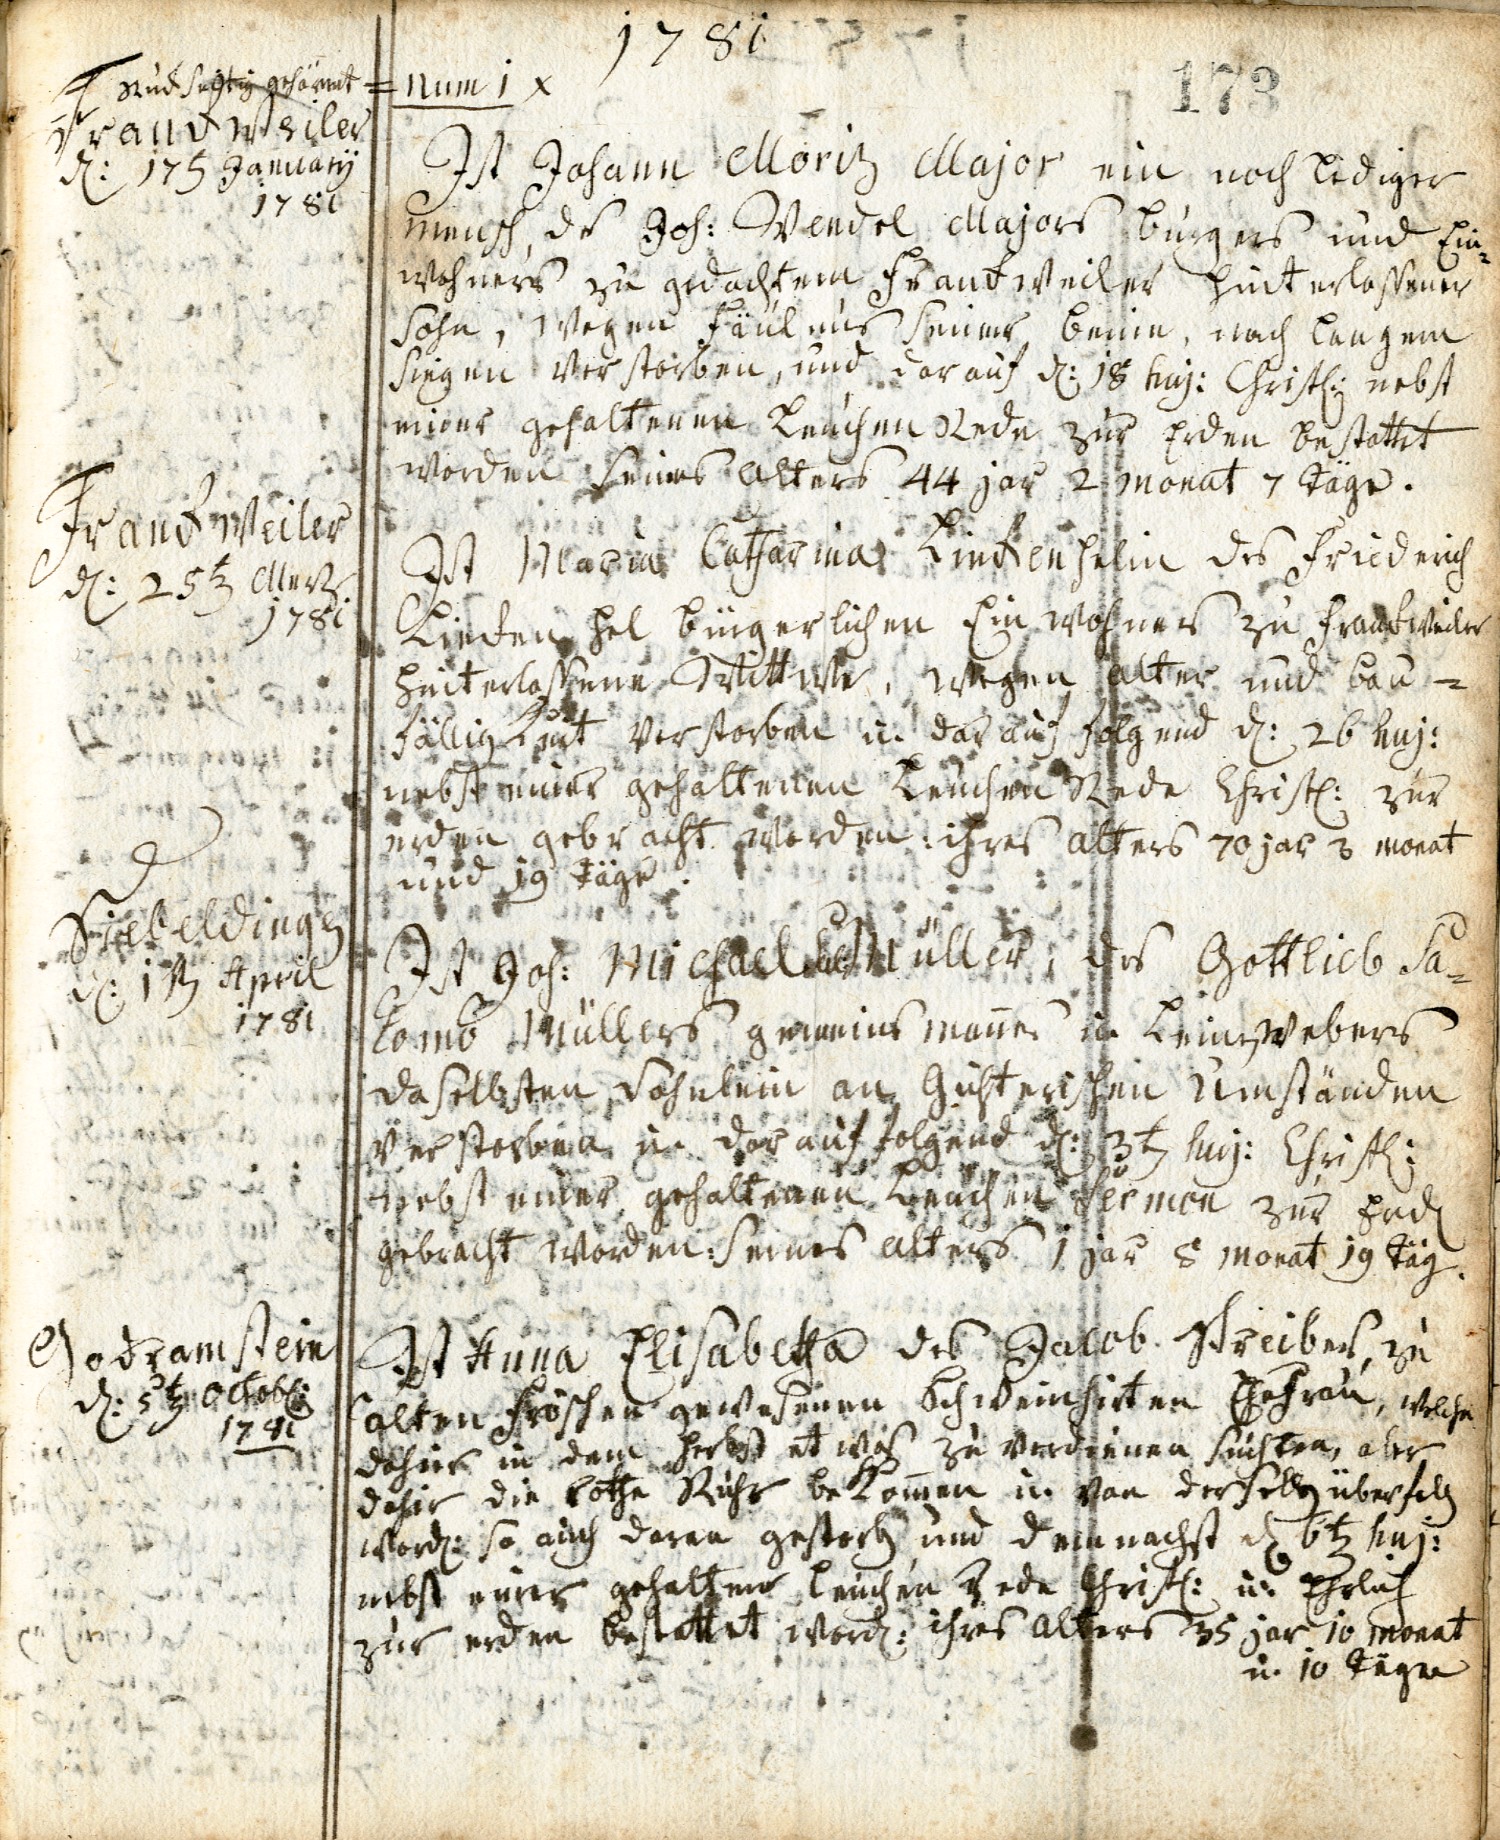 1781
173
num 1 x
Franckweiler
d: 17t January
1781
Ist Johann Moritz Major ein noch lediger
mensch, des Joh: Wendel Majors burgers und Ein-
wohners zu gedachtem Franckweiler hinterlassener
Sohn, wegen Fäulnus seiner beine, nach langem
siegen verstorben, und darauf d: 18 huj: Christl: nebst
einer gehaltenen Leuchen Rede zur Erden bestattet
worden seines alters 44 jar 2 monat 7 Täge.
Franckweiler
d: 25tn Mertz
1781
Ist Maria Catharina Linckenhelin des Friederich
Linckenhel bürgerlichen Einwohners zu Franckweiler
hinterlassene Wittwe, wegen alter und bau-
fälligkeit verstorben u. darauf folgend d: 26 huj:
nebst einer gehaltenen Leuchen Rede Christl: zur
erden gebracht worden: ihres alters 70 jar 3 monat
und 19 Täge.
Siebeldingen
d: 1tn April
1781
Ist Joh: Michael Müller, des Gottlieb Sa-
lomo Müllers gemeinsmanns u. Leinewebers
daselbsten Söhnlein an Gichterischen Umständen
verstorben u. darauf folgend d: 3tn huj: Christl:
nebst einer gehaltenen Leuchen Sermon zur Erd
gebracht worden: seines alters 1 jar 8 monat 19 Täg.
Godramstein
d: 5tn Octobr:
1781
Ist Anna Elisabetha des Jacob Schreibers, zu
alten Fröschen gewesenen Schweinhirten Ehefrau, welche
dahier in dem Herbst etwas zu verdienen suchten, aber
dahier die rothe Ruhr bekommen u. von derselben überfallen
word: so auch daran gestorben und demnachst d 6tn huj:
nebst einer gehaltener Leuchen Rede Christl: u: Ehrlich
zur erden bestattet word: ihres alters 35 jar 10 monat
u. 10 Tägen